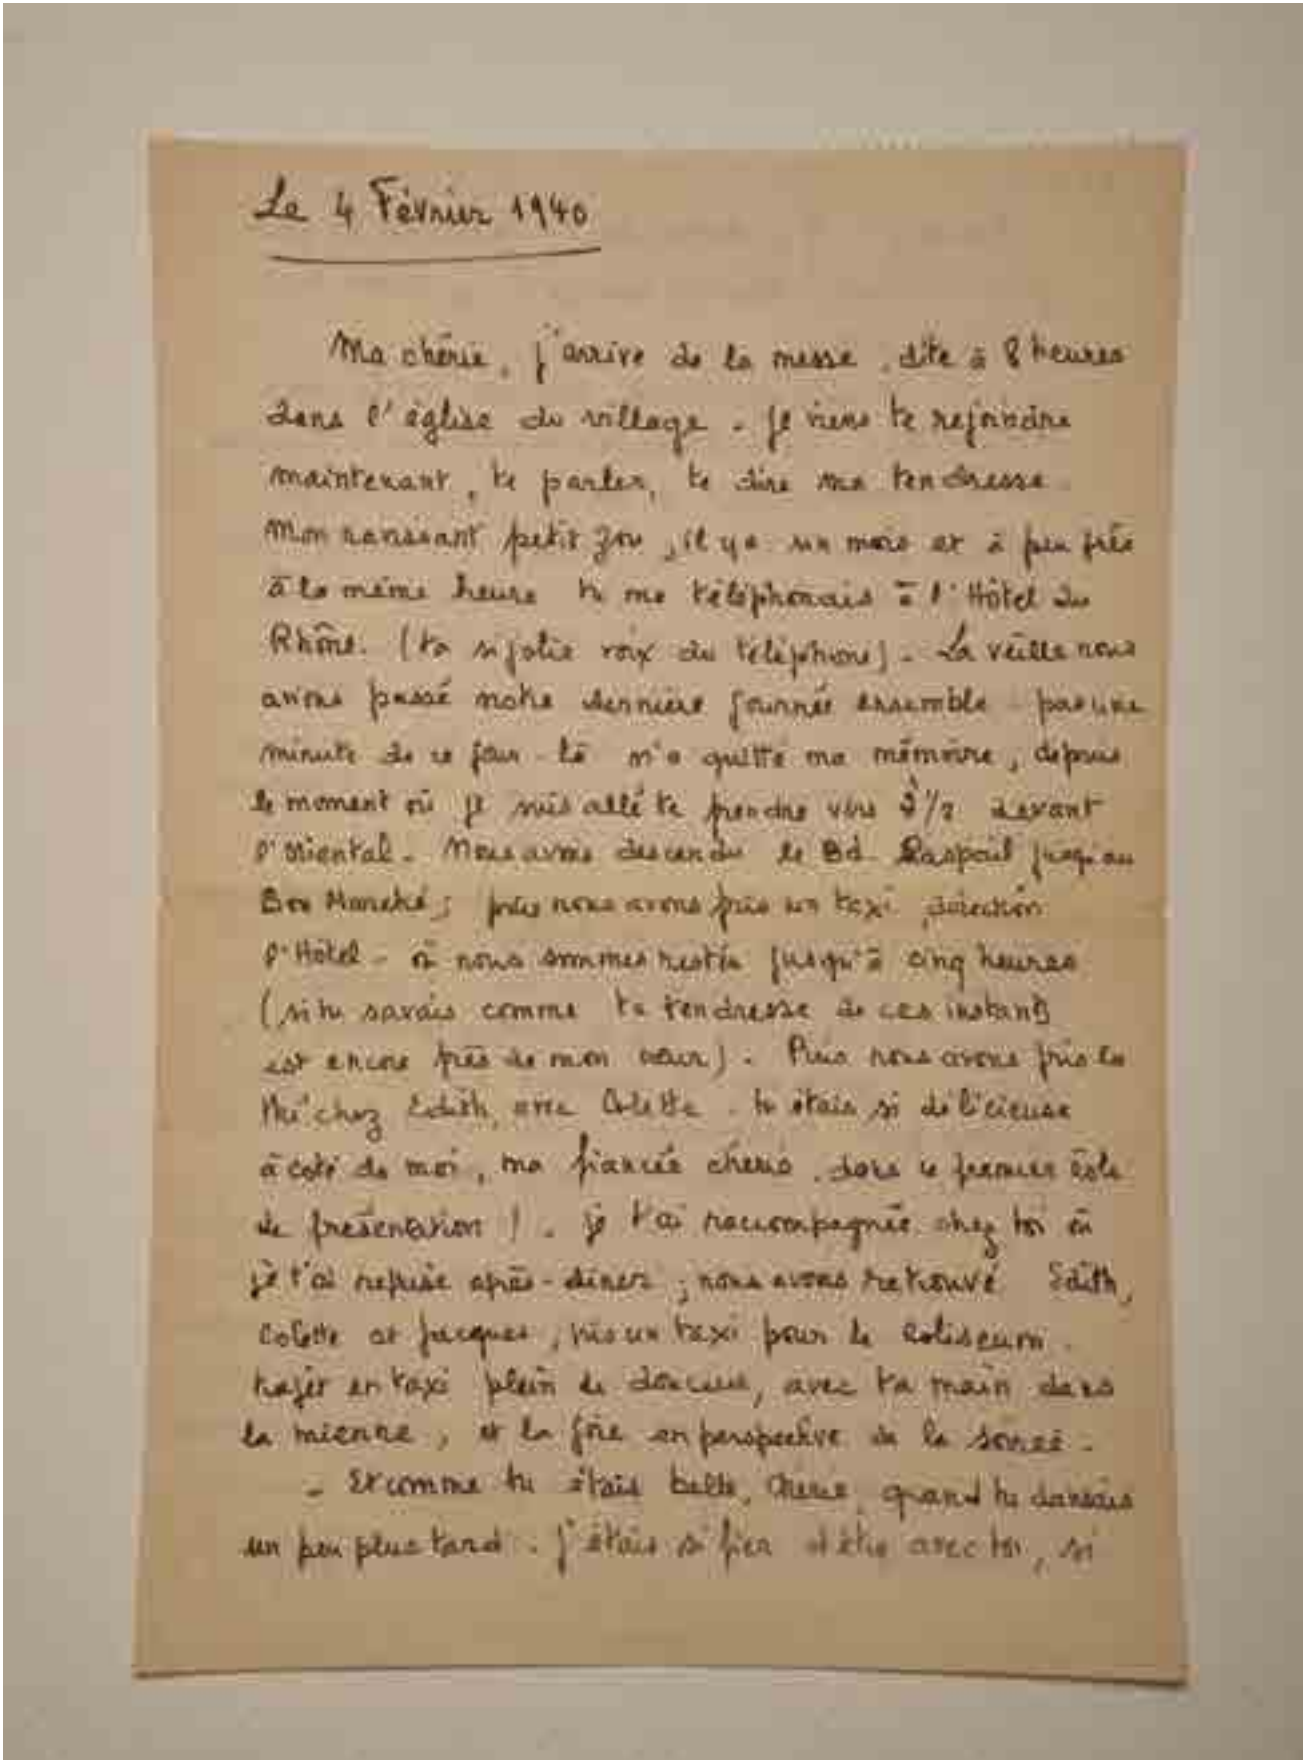 Le 4 Février 1940
Ma chérie, j'arrive de la messe, dite à 8 heures
dans l'église du village. Je viens te rejoindre
maintenant, te parler, te dire ma tendresse.
Mon ravissant petit Zou, il y a un mois et à peu près
à la même heure tu me téléphonais à l'Hôtel du
Rhône. (ta si jolie voix du téléphone). La veille nous
avions passé notre dernière journée ensemble - pas une
minute de ce jour-là n'a quitté ma mémoire, depuis
le moment où je suis allé te prendre vers 2 1/2 devant
l'Oriental. Nous avons descendu le Bd. Raspail jusqu'au
Bon Marché; puis nous avons pris un taxi, direction
l'Hôtel - où nous sommes restés jusqu'à cinq heures
(si tu savais comme ta tendresse de ces instants
est encore près de mon cœur). Puis nous avons pris le
thé chez Edith, avec Colette. tu étais si délicieuse
à coté de moi, ma fiancée chérie, dans ce premier
de présentation ! . je t'ai raccompagnée chez toi où
je t'ai reprise après-diner; nous avons retrouvé Edith,
Colette et Jacques, pris un taxi pour le Coliseum.
trajet en taxi plein de douceur, avec ta main dans
la mienne, et la joie en perspective de la soirée.
- Et comme tu étais belle, chérie, quand tu dansais
un peu plus tard. J'étais si fier d'être avec toi, si